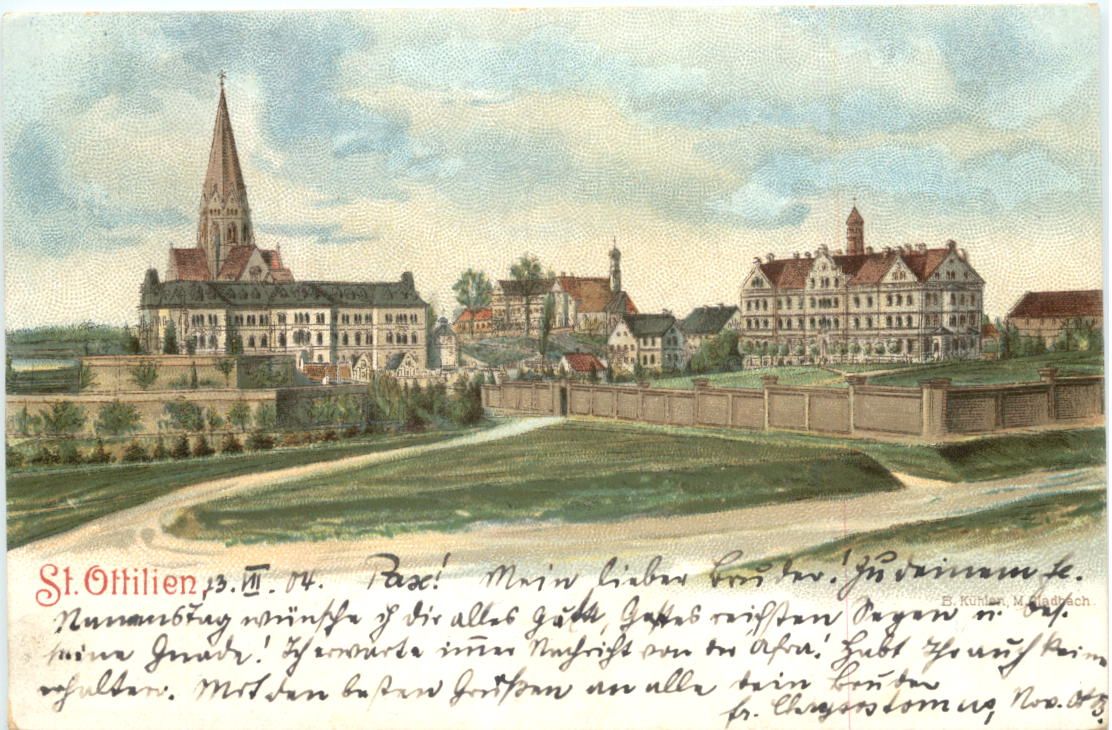 St. Ottilien 13. VII. 04. Pax! Mein lieber Bruder! Zu deinem hl.
B. Kühlen, M. Gladbach.
Namenstag wünsche ich dir alles Gute, Gottes reichsten Segen u.
seine Gnade! Ich erwarte immer Nachricht von der Afra! Habt Ihr auch keine
erhalten. Mit den besten Grüßen an alle dein Bruder
fr. Chrysostomus, Nov. O.S.B.